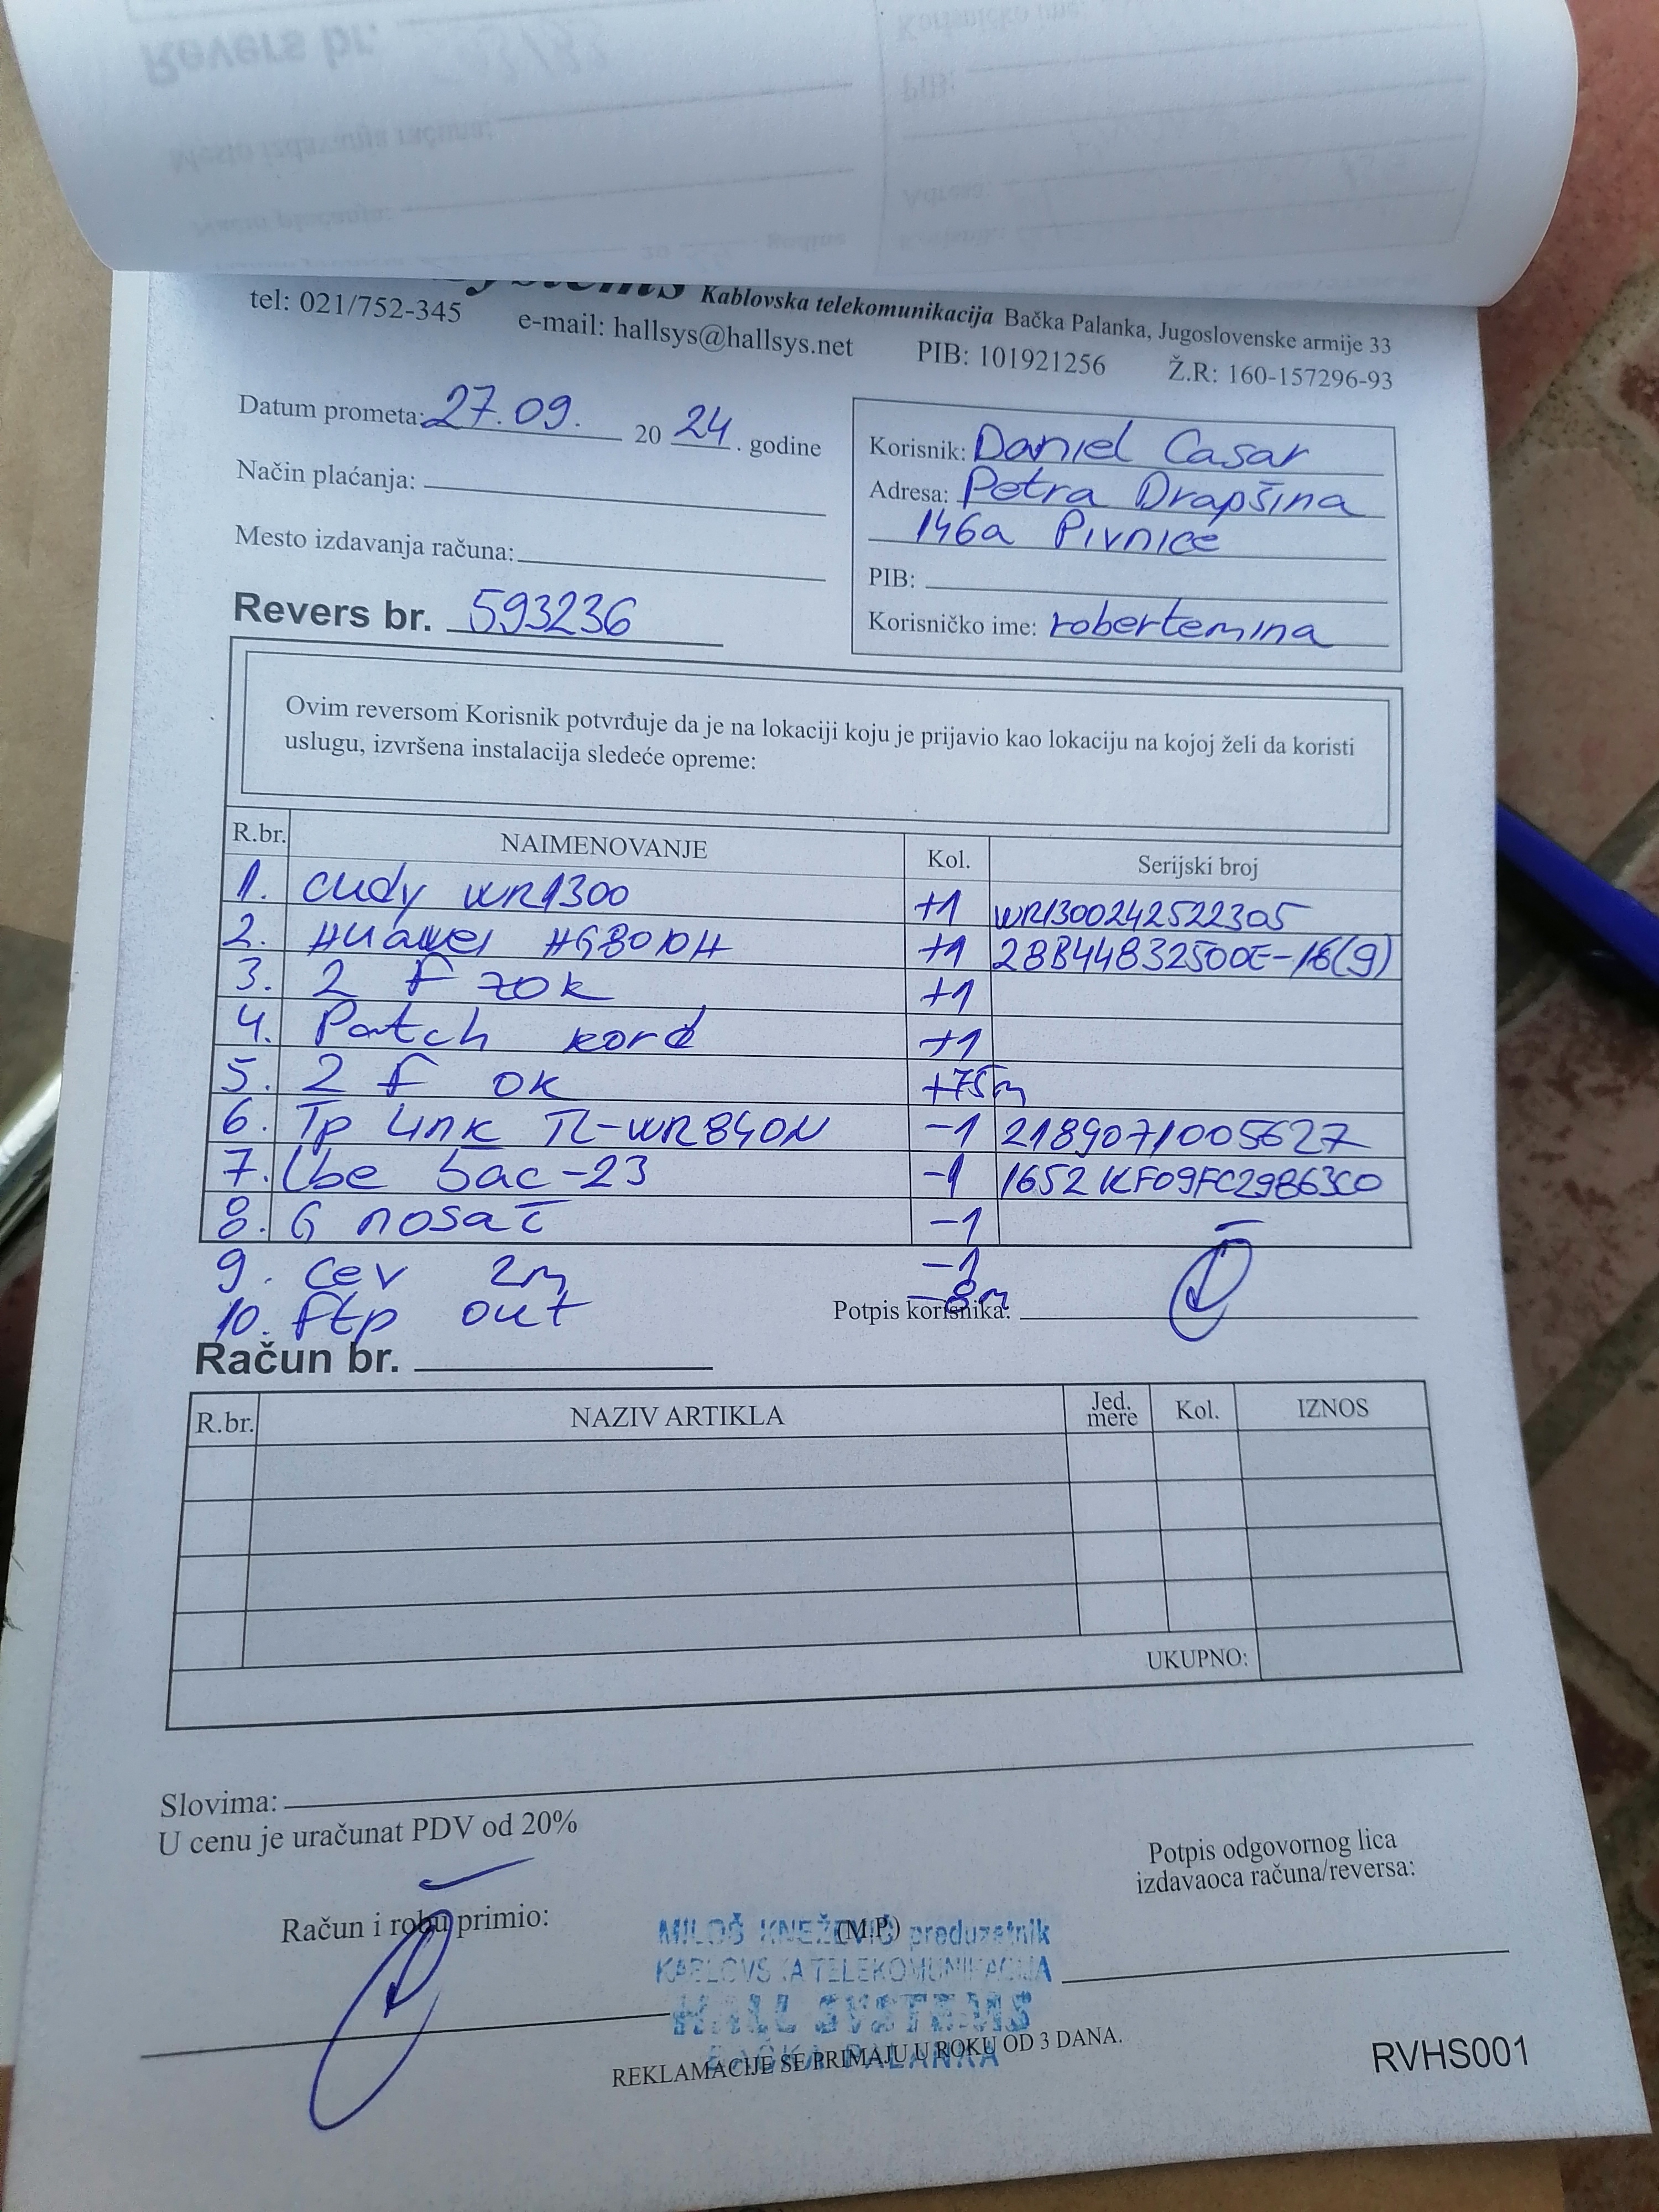 Revers br.
Mesto izdavanja računa:
Korisničko ime:
PIB:
Adresa:
Kablovska telekomunikacija Bačka Palanka, Jugoslovenske armije 33
tel: 021/752-345 e-mail: hallsys@hallsys.net PIB: 101921256 Ž.R: 160-157296-93
Datum prometa: 27.09. 20 24. godine
Način plaćanja:
Mesto izdavanja računa:
Revers br. 593236
Korisnik: Daniel Casar
Adresa: Petra Drapšina
146a Pivnice
PIB:
Korisničko ime: robertemina
Ovim reversom Korisnik potvrđuje da je na lokaciji koju je prijavio kao lokaciju na kojoj želi da koristi
uslugu, izvršena instalacija sledeće opreme:
R.br. NAIMENOVANJE Kol. Serijski broj
1. cudy WR1300 +1 WR1300242522305
2. Huawei HG8010H +1 28B44832500E-16(9)
3. 2 f zok +1
4. Patch kord +1
5. 2 f ok +75m
6. Tp Link TL-WR840N -1 2189071005627
7. Lbe 5ac-23 -1 1652KF09FC29863C0
8. G nosač -1
9. cev 2m -1
10. ftp out -8m
Potpis korisnika:
Račun br.
R.br. NAZIV ARTIKLA Jed. mere Kol. IZNOS
UKUPNO:
Slovima:
U cenu je uračunat PDV od 20%
Potpis odgovornog lica
izdavaoca računa/reversa:
Račun i robu primio:
(M.P.)
MILOŠ KNEŽEVIĆ preduzetnik
KABLOVSKA TELEKOMUNIKACIJA
HALL SYSTEMS
BAČKA PALANKA
REKLAMACIJE SE PRIMAJU U ROKU OD 3 DANA.
RVHS001